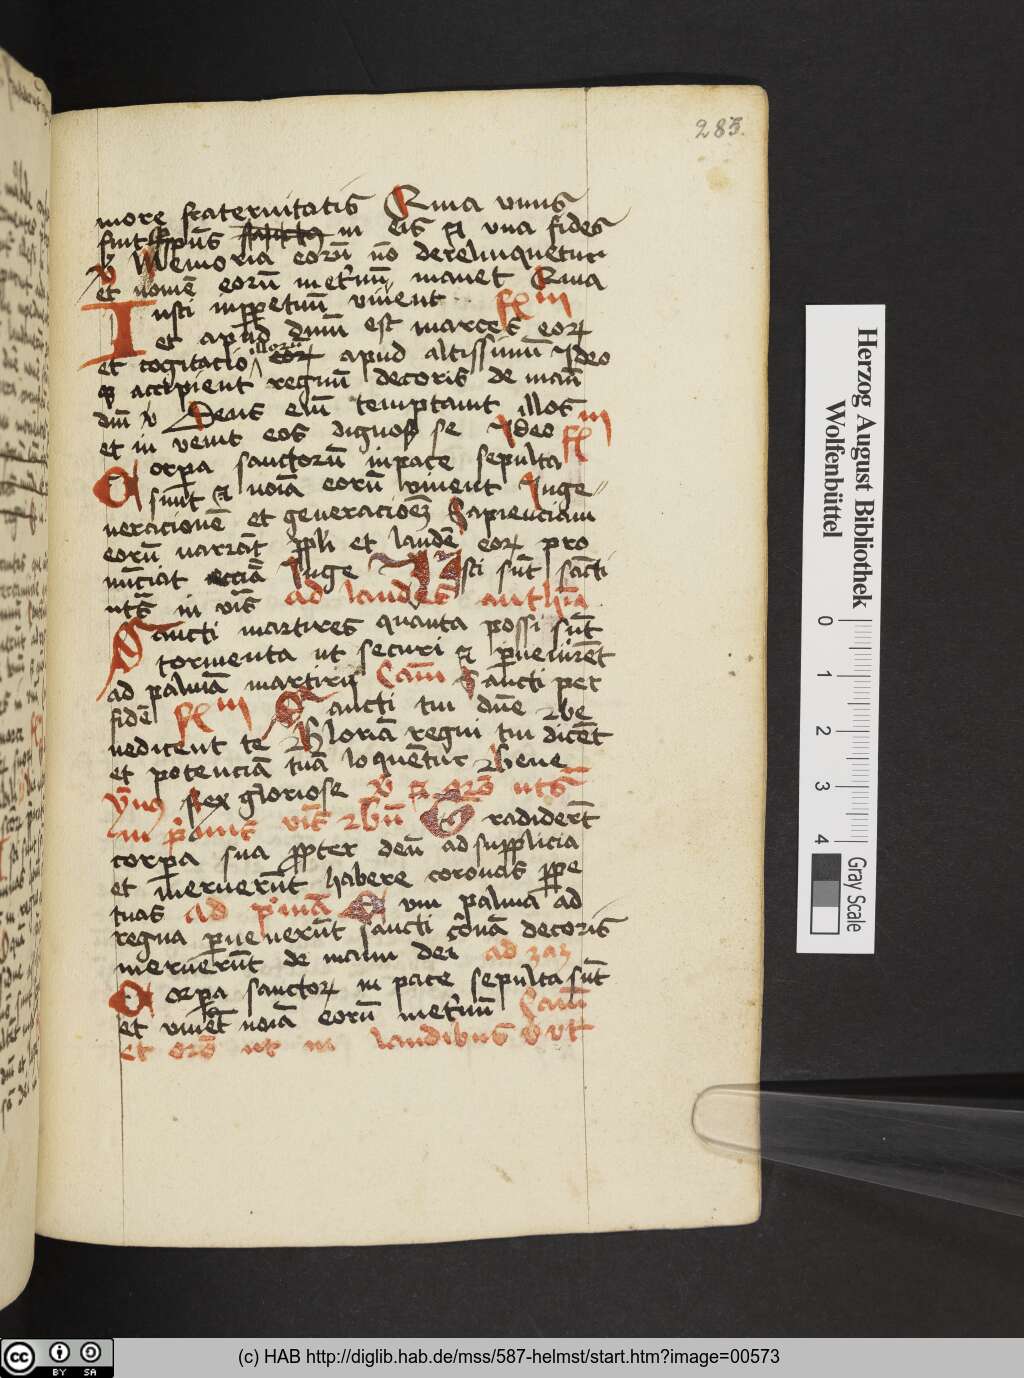 283.
more fraternitatis Quia unus
fuit spūs in eis et una fides
v Memoria eorū nō derelinquetur
et nomē eorū inet'nū manet Quia
Iusti inppetuū vivent
et apud dnm est merces eorꝝ
et cogitacio illorū apud altissimū Ideo
accipient regnū decoris de manū
dnī v Deus enī temptavit illos
et in venit eos dignos se Ideo
Corpa sanctorū inpace sepulta
sunt et noīa eorū vivent Inge
neracionē et generacioēꝫ Sapienciam
eorū narrāt ppli et laudē eorꝝ pro
nūciat eccīa Iuge Iusti sūt sācti
ad laudes anthīa
Sancti martires quanta possi sūt
tormenta ut securi et pvenirēt
ad palmā martirij Sancti per
fidē Sancti tui dnē be
nedicent te Gloriā regni tui dicēt
et potenciā tuā loquētur Bene
Rex gloriose
Tradiderūt
corpa sua ppter deū ad supplicia
et meruerūt habere coronas ppe
tuas Ad p'mā Cum palma ad
regna pvenerūt sancti coronā decoris
meruerūt de manu dei
Corpa sanctorꝝ in pace sepulta sūt
et vivēt noīa eorū inet'nū
et ut in laudibus
Herzog August Bibliothek
Wolfenbüttel
0 1 2 3 4
Gray Scale
cc BY SA
(c) HAB http://diglib.hab.de/mss/587-helmst/start.htm?image=00573